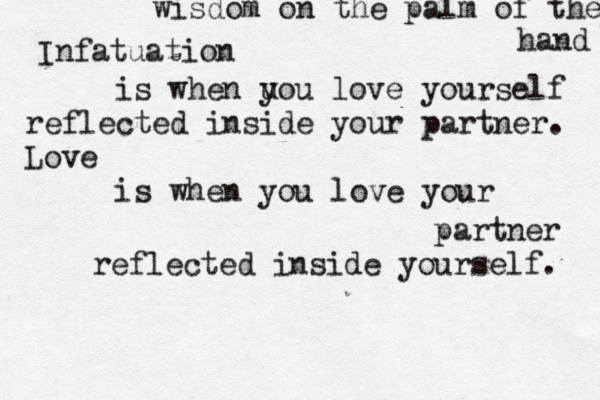 wisdom on the palm of the
hand
Infatuation
is when you love yourself
reflected inside your partner.
Love
is when you love your
partner
reflected inside yourself.